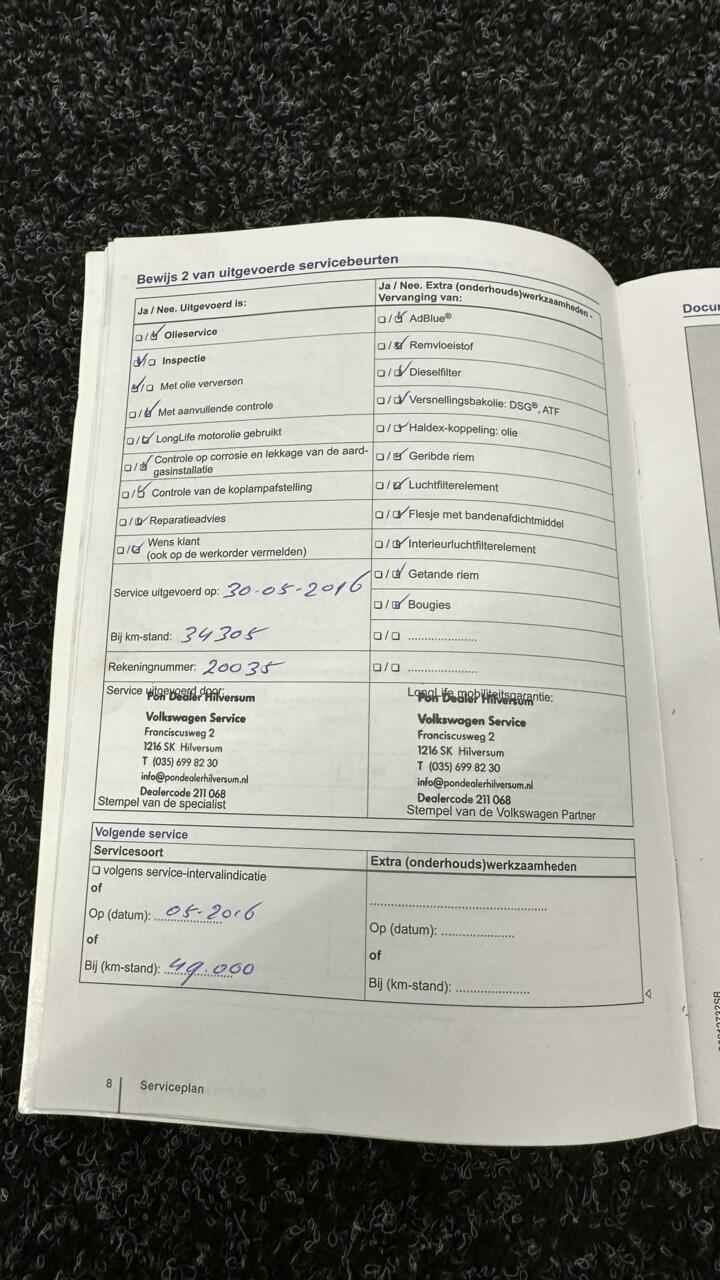 Bewijs 2 van uitgevoerde servicebeurten
Ja / Nee. Uitgevoerd is:
☐/☑ Olieservice
☑/☐ Inspectie
☑/☐ Met olie verversen
☐/☑ Met aanvullende controle
☐/☑ LongLife motorolie gebruikt
☐/☑ Controle op corrosie en lekkage van de aard-
gasinstallatie
☐/☑ Controle van de koplampafstelling
☐/☑ Reparatieadvies
☐/☑ Wens klant
(ook op de werkorder vermelden)
Service uitgevoerd op: 30-05-2016
Bij km-stand: 34305
Rekeningnummer: 20035
Service uitgevoerd door:
Pon Dealer Hilversum
Volkswagen Service
Franciscusweg 2
1216 SK Hilversum
T (035) 699 82 30
info@pondealerhilversum.nl
Dealercode 211 068
Stempel van de specialist
Ja / Nee. Extra (onderhouds)werkzaamheden -
Vervanging van:
☐/☑ AdBlue®
☐/☑ Remvloeistof
☐/☑ Dieselfilter
☐/☑ Versnellingsbakolie: DSG®, ATF
☐/☑ Haldex-koppeling: olie
☐/☑ Geribde riem
☐/☑ Luchtfilterelement
☐/☑ Flesje met bandenafdichtmiddel
☐/☑ Interieurluchtfilterelement
☐/☑ Getande riem
☐/☑ Bougies
☐/☐ .....................
☐/☐ .....................
LongLife mobiliteitsgarantie:
Pon Dealer Hilversum
Volkswagen Service
Franciscusweg 2
1216 SK Hilversum
T (035) 699 82 30
info@pondealerhilversum.nl
Dealercode 211 068
Stempel van de Volkswagen Partner
Volgende service
Servicesoort
☐ volgens service-intervalindicatie
of
Op (datum): 05-2016
of
Bij (km-stand): 49.000
Extra (onderhouds)werkzaamheden
.....................................................
Op (datum): ......................
of
Bij (km-stand): ......................
8
Serviceplan